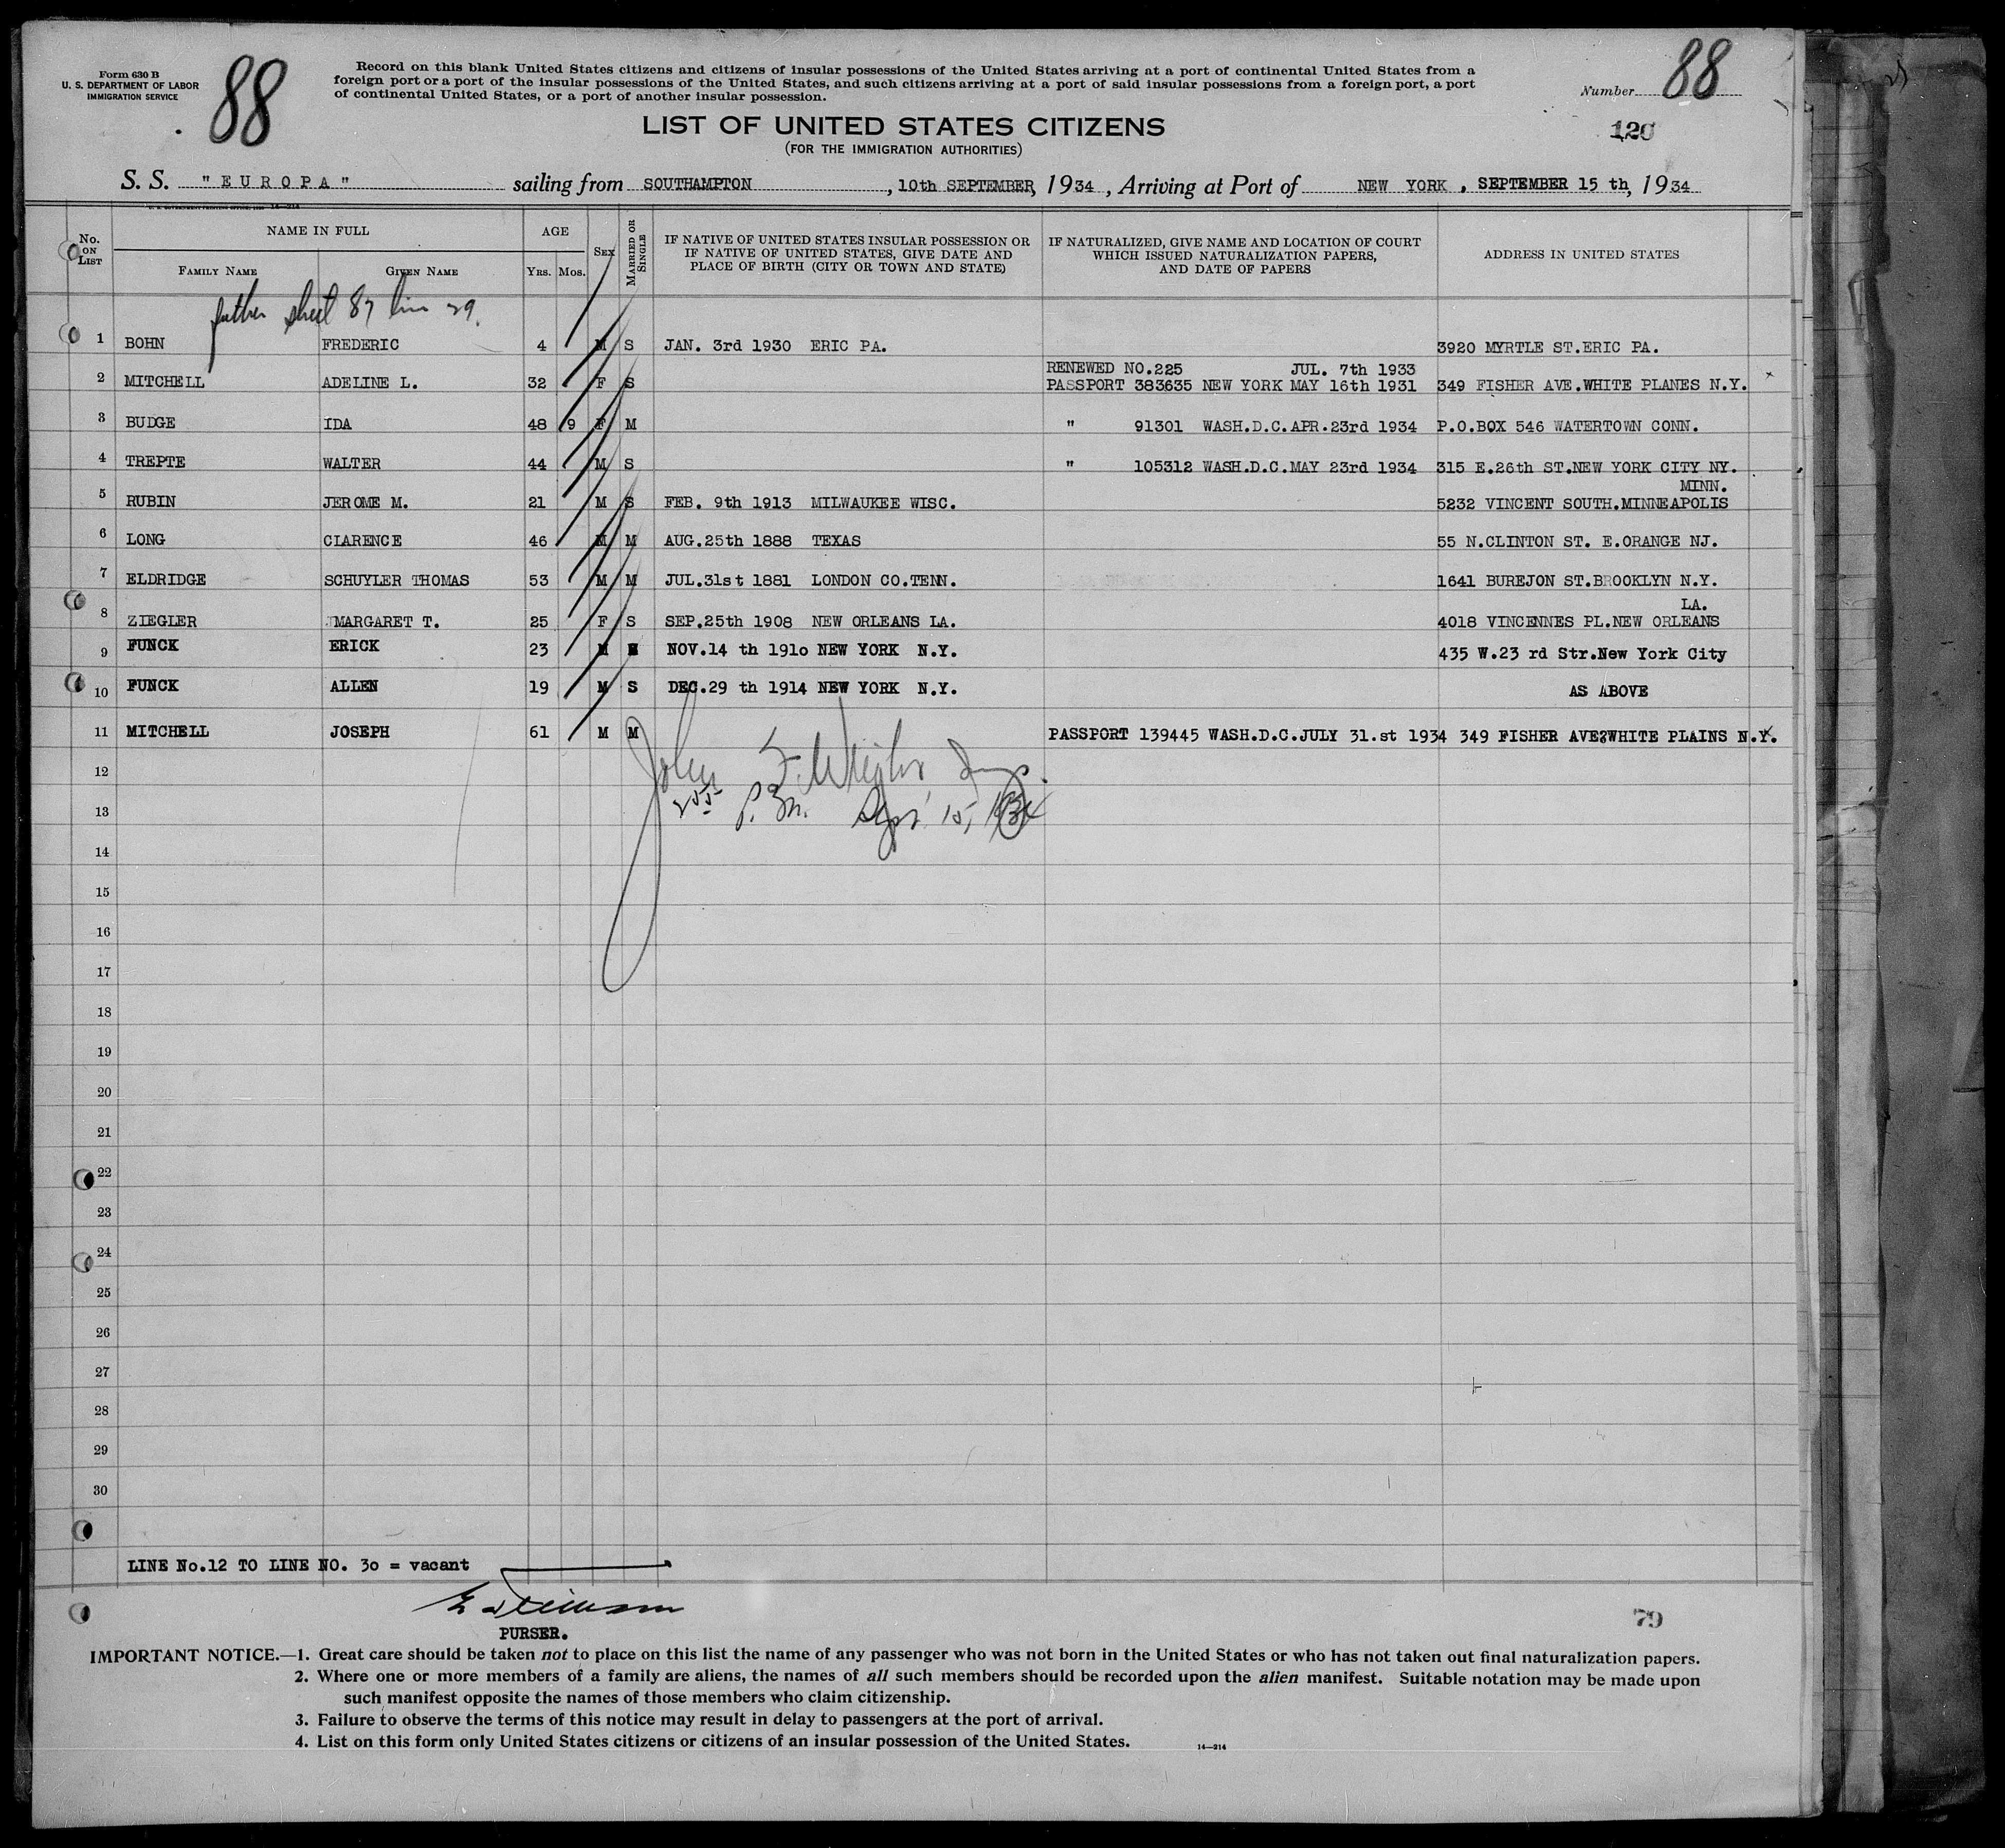 Form 630 B
U. S. DEPARTMENT OF LABOR
IMMIGRATION SERVICE
88
Record on this blank United States citizens and citizens of insular possessions of the United States arriving at a port of continental United States from a
foreign port or a port of the insular possessions of the United States, and such citizens arriving at a port of said insular possessions from a foreign port, a port
of continental United States, or a port of another insular possession.
Number 88
120
LIST OF UNITED STATES CITIZENS
(FOR THE IMMIGRATION AUTHORITIES)
S. S. "EUROPA" sailing from SOUTHAMPTON, 10th SEPTEMBER, 1934, Arriving at Port of NEW YORK, SEPTEMBER 15 th, 1934
No. ON LIST
NAME IN FULL
FAMILY NAME GIVEN NAME
AGE
Yrs. Mos.
SEX
MARRIED OR SINGLE
IF NATIVE OF UNITED STATES INSULAR POSSESSION OR
IF NATIVE OF UNITED STATES, GIVE DATE AND
PLACE OF BIRTH (CITY OR TOWN AND STATE)
IF NATURALIZED, GIVE NAME AND LOCATION OF COURT
WHICH ISSUED NATURALIZATION PAPERS,
AND DATE OF PAPERS
ADDRESS IN UNITED STATES
father sheet 87 line 29.
1 BOHN FREDERIC 4 M S JAN. 3rd 1930 ERIC PA. 3920 MYRTLE ST.ERIC PA.
RENEWED NO.225 JUL. 7th 1933
2 MITCHELL ADELINE L. 32 F S PASSPORT 383635 NEW YORK MAY 16th 1931 349 FISHER AVE.WHITE PLANES N.Y. x
3 BUDGE IDA 48 9 F M " 91301 WASH.D.C.APR.23rd 1934 P.O.BOX 546 WATERTOWN CONN.
4 TREPTE WALTER 44 M S " 105312 WASH.D.C.MAY 23rd 1934 315 E.26th ST.NEW YORK CITY NY.
MINN.
5 RUBIN JEROME M. 21 M S FEB. 9th 1913 MILWAUKEE WISC. 5232 VINCENT SOUTH.MINNEAPOLIS
6 LONG CLARENCE 46 M M AUG.25th 1888 TEXAS 55 N.CLINTON ST. E.ORANGE NJ.
7 ELDRIDGE SCHUYLER THOMAS 53 M M JUL.31st 1881 LONDON CO.TENN. 1641 BUREJON ST.BROOKLYN N.Y.
LA.
8 ZIEGLER MARGARET T. 25 F S SEP.25th 1908 NEW ORLEANS LA. 4018 VINCENNES PL.NEW ORLEANS
9 FUNCK ERICK 23 M NOV.14 th 191o NEW YORK N.Y. 435 W.23 rd Str.New York City
10 FUNCK ALLEN 19 M S DEC.29 th 1914 NEW YORK N.Y. AS ABOVE
11 MITCHELL JOSEPH 61 M M PASSPORT 139445 WASH.D.C.JULY 31.st 1934 349 FISHER AVE?WHITE PLAINS N.Y. x
John
12
255 P.M. Sept 15, 1934
13
14
15
16
17
18
19
20
21
22
23
24
25
26
27
28
29
30
LINE No.12 TO LINE NO. 3o = vacant
PURSER.
79
IMPORTANT NOTICE.—1. Great care should be taken not to place on this list the name of any passenger who was not born in the United States or who has not taken out final naturalization papers.
2. Where one or more members of a family are aliens, the names of all such members should be recorded upon the alien manifest. Suitable notation may be made upon
such manifest opposite the names of those members who claim citizenship.
3. Failure to observe the terms of this notice may result in delay to passengers at the port of arrival.
4. List on this form only United States citizens or citizens of an insular possession of the United States.
14—214